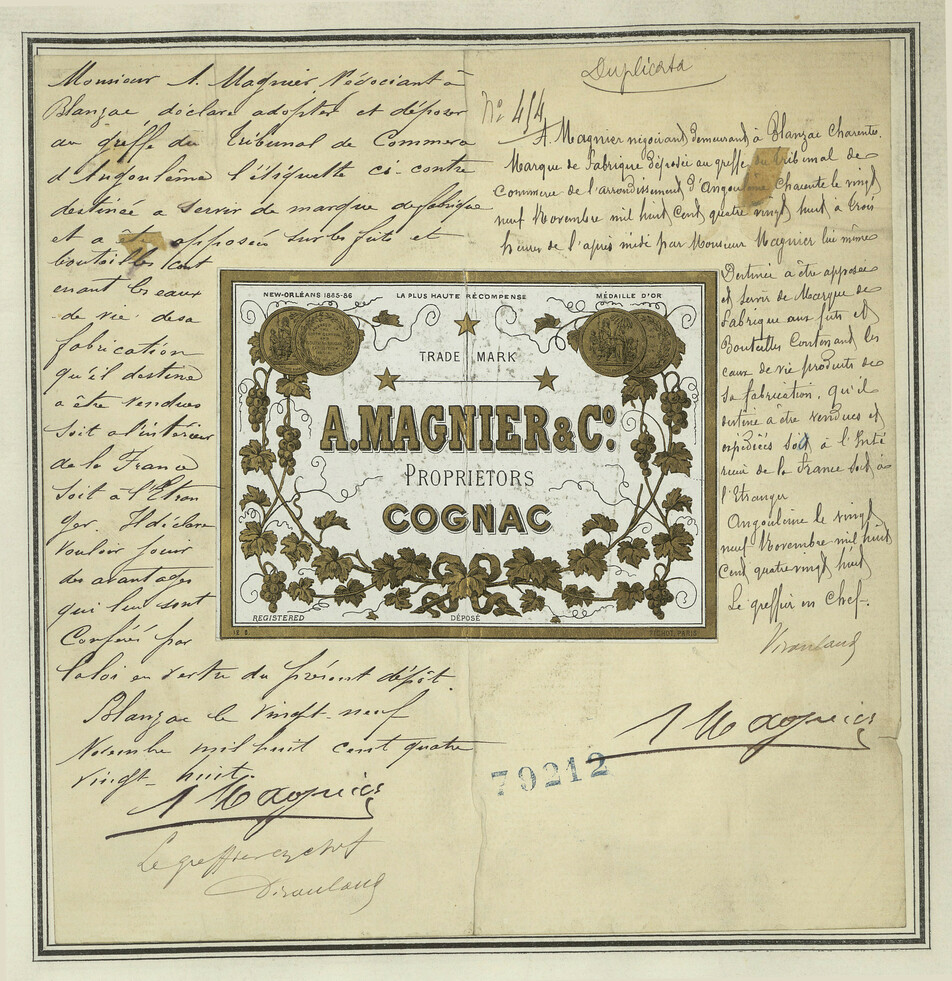 Monsieur A. Magnier, Négociant à
Blanzac, déclare adopter et déposer
au greffe du Tribunal de Commerce
d'Angoulême l'étiquette ci-contre
destinée a servir de marque de fabrique
et a être apposée sur les futs et
bouteilles cont
enant les eaux
-de vie de sa
fabrication
qu'il destine
a être vendues
soit a l'intérieur
de la France
soit a l'Etran
ger. Il déclare
vouloir jouir
des avantages
qui leur sont
Conférés par
la loi en vertu du présent dépôt.
Blanzac le vingt-neuf
Novembre mil huit cent quatre
vingt-huit.
A Magnier
Le greffier en chef
Duplicata
No 454
A. Magnier négociant demeurant à Blanzac Charente.
Marque de Fabrique déposée au greffe du tribunal de
Commerce de l'arrondissement d'Angoulême Charente le vingt
neuf Novembre mil huit cent quatre vingt huit à trois
heures de l'après midi par Monsieur Magnier lui même
Destinée à être apposée
et servir de Marque de
Fabrique aux futs et
Bouteilles Contenant les
eaux de vie produits de
sa fabrication. Qu'il
destine à être vendues et
expédiées soit à l'Inté
rieur de la France soit à
l'Etranger
Angoulême le vingt
neuf Novembre mil huit
Cent quatre vingt huit
Le greffier en chef.
A Magnier
79212
NEW-ORLÉANS 1885-86 LA PLUS HAUTE RÉCOMPENSE MÉDAILLE D'OR
TRADE MARK
A. MAGNIER & Co.
PROPRIETORS
COGNAC
REGISTERED DÉPOSÉ